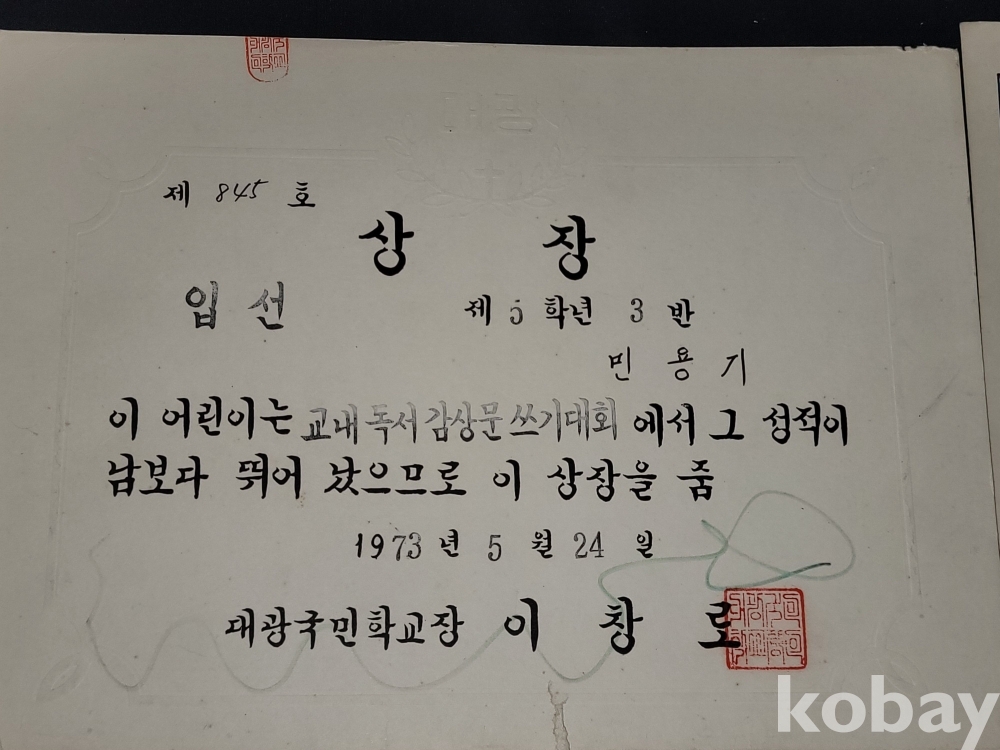 제 845 호
상 장
입 선
제 5 학년 3 반
민 용 기
이 어린이는 교내 독서 감상문 쓰기대회 에서 그 성적이
남보다 뛰어 났으므로 이 상장을 줌
1973 년 5 월 24 일
대광국민학교장 이 창 로
kobay